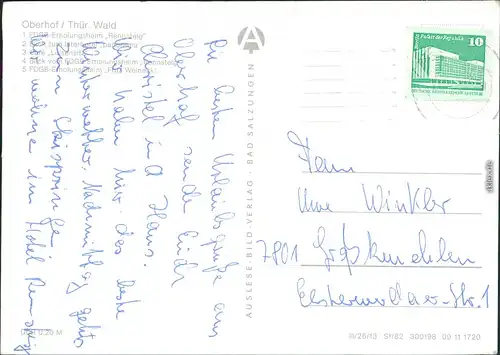 Oberhof / Thür. Wald
1 FDGB-Erholungsheim „Rennsteig“
2 Blick zum Interhotel „Panorama“
4 Blick vom FDGB-Erholungsheim „Rennsteig“
5 FDGB-Erholungsheim „Fritz Weineck“
Die besten Urlaubsgrüße aus
Oberhof senden Euch
Christel und Hans.
Wir haben hier das beste
Winterwetter. Nachmittag gehts
zum Skispringen.
Wir wohnen im Hotel Rennsteig
AUSLESE-BILD-VERLAG · BAD SALZUNGEN
10
Palast der Republik
DEUTSCHE DEMOKRATISCHE REPUBLIK
Fam.
Uwe Winkler
7801 Großkmehlen
Elsterwerdaer-Str. 1
0,20 M
III/26/13 S11/82 300198 09 11 1720